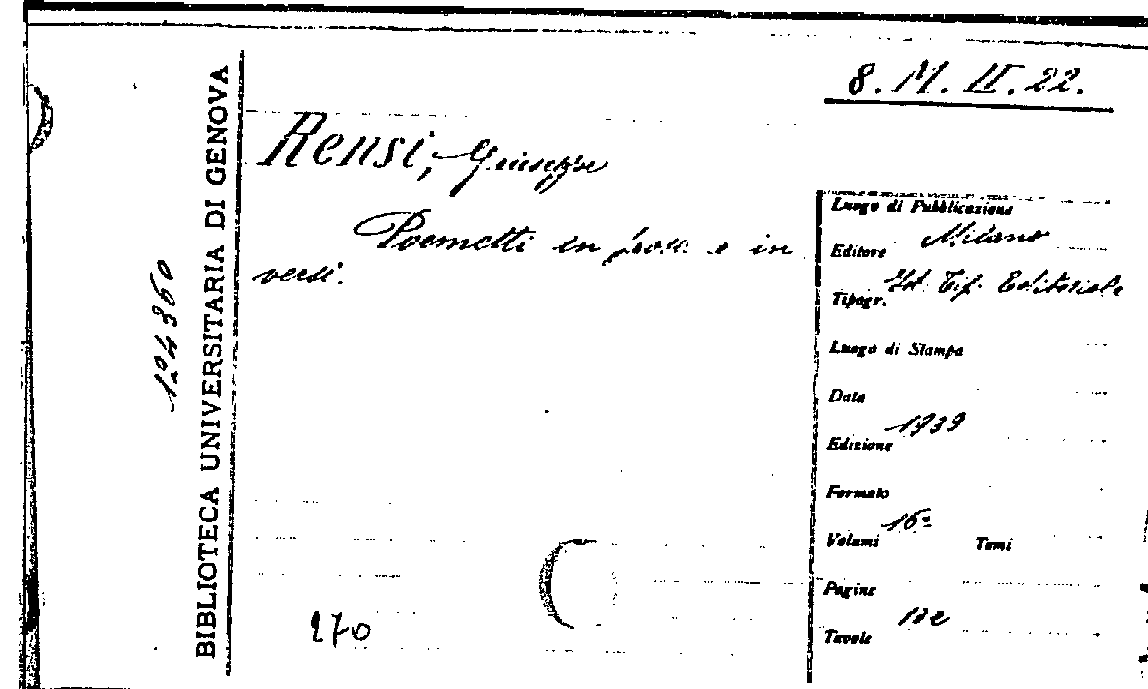 8. M. II. 22.
Rensi, Giuseppe
Poemetti in prosa e in
versi.
BIBLIOTECA UNIVERSITARIA DI GENOVA
124360
Luogo di Pubblicazione
Milano
Editore
Ist. Tip. Editoriale
Tipogr.
Luogo di Stampa
Data
1939
Edizione
Formato
16º
Volumi Tomi
Pagine
Tavole
270